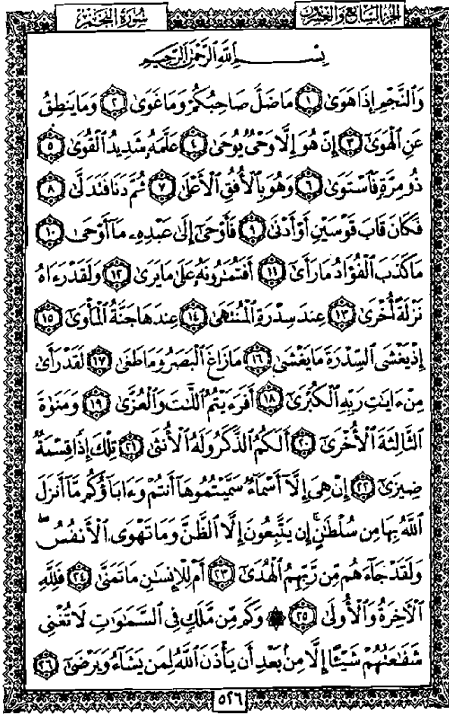 سُورَةُ النَّجْمِ
الجُزْءُ السَّابِعُ وَالْعِشْرُونَ
بِسْمِ اللَّهِ الرَّحْمَٰنِ الرَّحِيمِ
وَالنَّجْمِ إِذَا هَوَىٰ ١ مَا ضَلَّ صَاحِبُكُمْ وَمَا غَوَىٰ ٢ وَمَا يَنطِقُ
عَنِ الْهَوَىٰ ٣ إِنْ هُوَ إِلَّا وَحْيٌ يُوحَىٰ ٤ عَلَّمَهُ شَدِيدُ الْقُوَىٰ ٥
ذُو مِرَّةٍ فَاسْتَوَىٰ ٦ وَهُوَ بِالْأُفُقِ الْأَعْلَىٰ ٧ ثُمَّ دَنَا فَتَدَلَّىٰ ٨
فَكَانَ قَابَ قَوْسَيْنِ أَوْ أَدْنَىٰ ٩ فَأَوْحَىٰ إِلَىٰ عَبْدِهِ مَا أَوْحَىٰ ١٠
مَا كَذَبَ الْفُؤَادُ مَا رَأَىٰ ١١ أَفَتُمَارُونَهُ عَلَىٰ مَا يَرَىٰ ١٢ وَلَقَدْ رَءَاهُ
نَزْلَةً أُخْرَىٰ ١٣ عِندَ سِدْرَةِ الْمُنتَهَىٰ ١٤ عِندَهَا جَنَّةُ الْمَأْوَىٰ ١٥
إِذْ يَغْشَى السِّدْرَةَ مَا يَغْشَىٰ ١٦ مَا زَاغَ الْبَصَرُ وَمَا طَغَىٰ ١٧ لَقَدْ رَأَىٰ
مِنْ ءَايَٰتِ رَبِّهِ الْكُبْرَىٰ ١٨ أَفَرَءَيْتُمُ اللَّٰتَ وَالْعُزَّىٰ ١٩ وَمَنَوٰةَ
الثَّالِثَةَ الْأُخْرَىٰ ٢٠ أَلَكُمُ الذَّكَرُ وَلَهُ الْأُنثَىٰ ٢١ تِلْكَ إِذًا قِسْمَةٌ
ضِيزَىٰ ٢٢ إِنْ هِيَ إِلَّا أَسْمَاءٌ سَمَّيْتُمُوهَا أَنتُمْ وَءَابَاؤُكُم مَّا أَنزَلَ
اللَّهُ بِهَا مِن سُلْطَٰنٍ إِن يَتَّبِعُونَ إِلَّا الظَّنَّ وَمَا تَهْوَى الْأَنفُسُ ۖ
وَلَقَدْ جَاءَهُم مِّن رَّبِّهِمُ الْهُدَىٰ ٢٣ أَمْ لِلْإِنسَٰنِ مَا تَمَنَّىٰ ٢٤ فَلِلَّهِ
الْآخِرَةُ وَالْأُولَىٰ ٢٥ ۞ وَكَم مِّن مَّلَكٍ فِي السَّمَٰوَٰتِ لَا تُغْنِي
شَفَٰعَتُهُمْ شَيْئًا إِلَّا مِن بَعْدِ أَن يَأْذَنَ اللَّهُ لِمَن يَشَاءُ وَيَرْضَىٰ ٢٦
٥٢٦